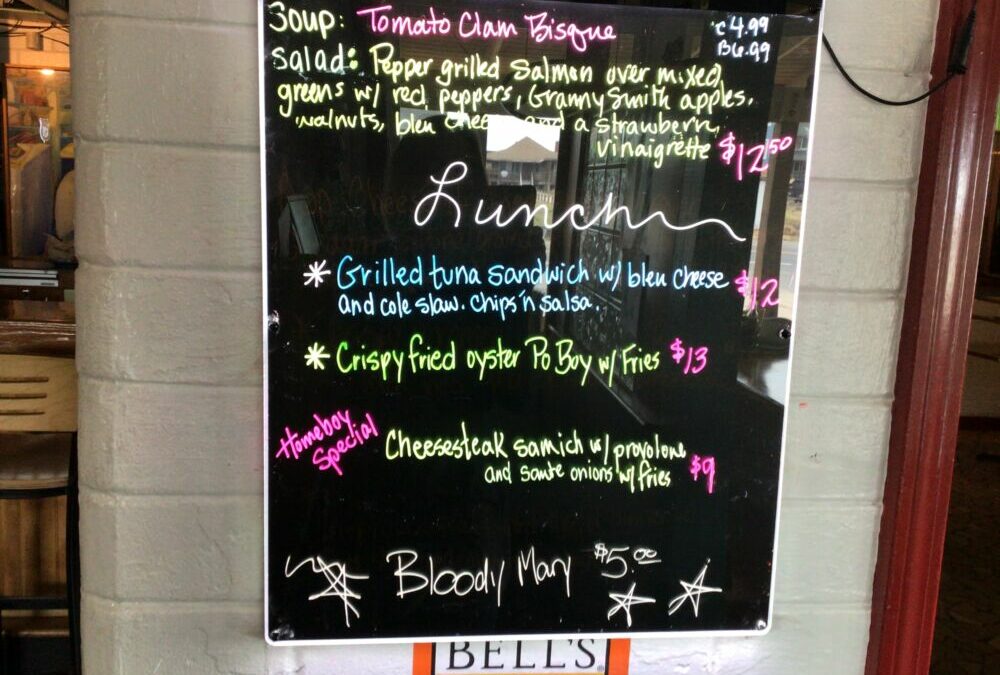 Soup: Tomato Clam Bisque C 4.99
B 6.99
Salad: Pepper grilled Salmon over mixed
greens w/ red peppers, Granny Smith apples,
walnuts, bleu cheese and a strawberry
vinaigrette $12.50
Lunch
* Grilled tuna sandwich w/ bleu cheese $12
and cole slaw. Chips 'n salsa.
* Crispy fried oyster Po Boy w/ Fries $13
Homeboy
Special
Cheesesteak samich w/ provolone
and saute onions w/ fries $9
Bloody Mary $5.00
BELL'S